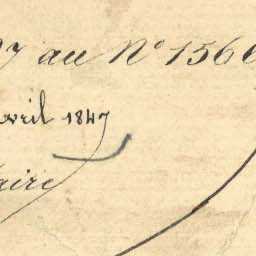 7 au N° 1566
avril 1847
aire